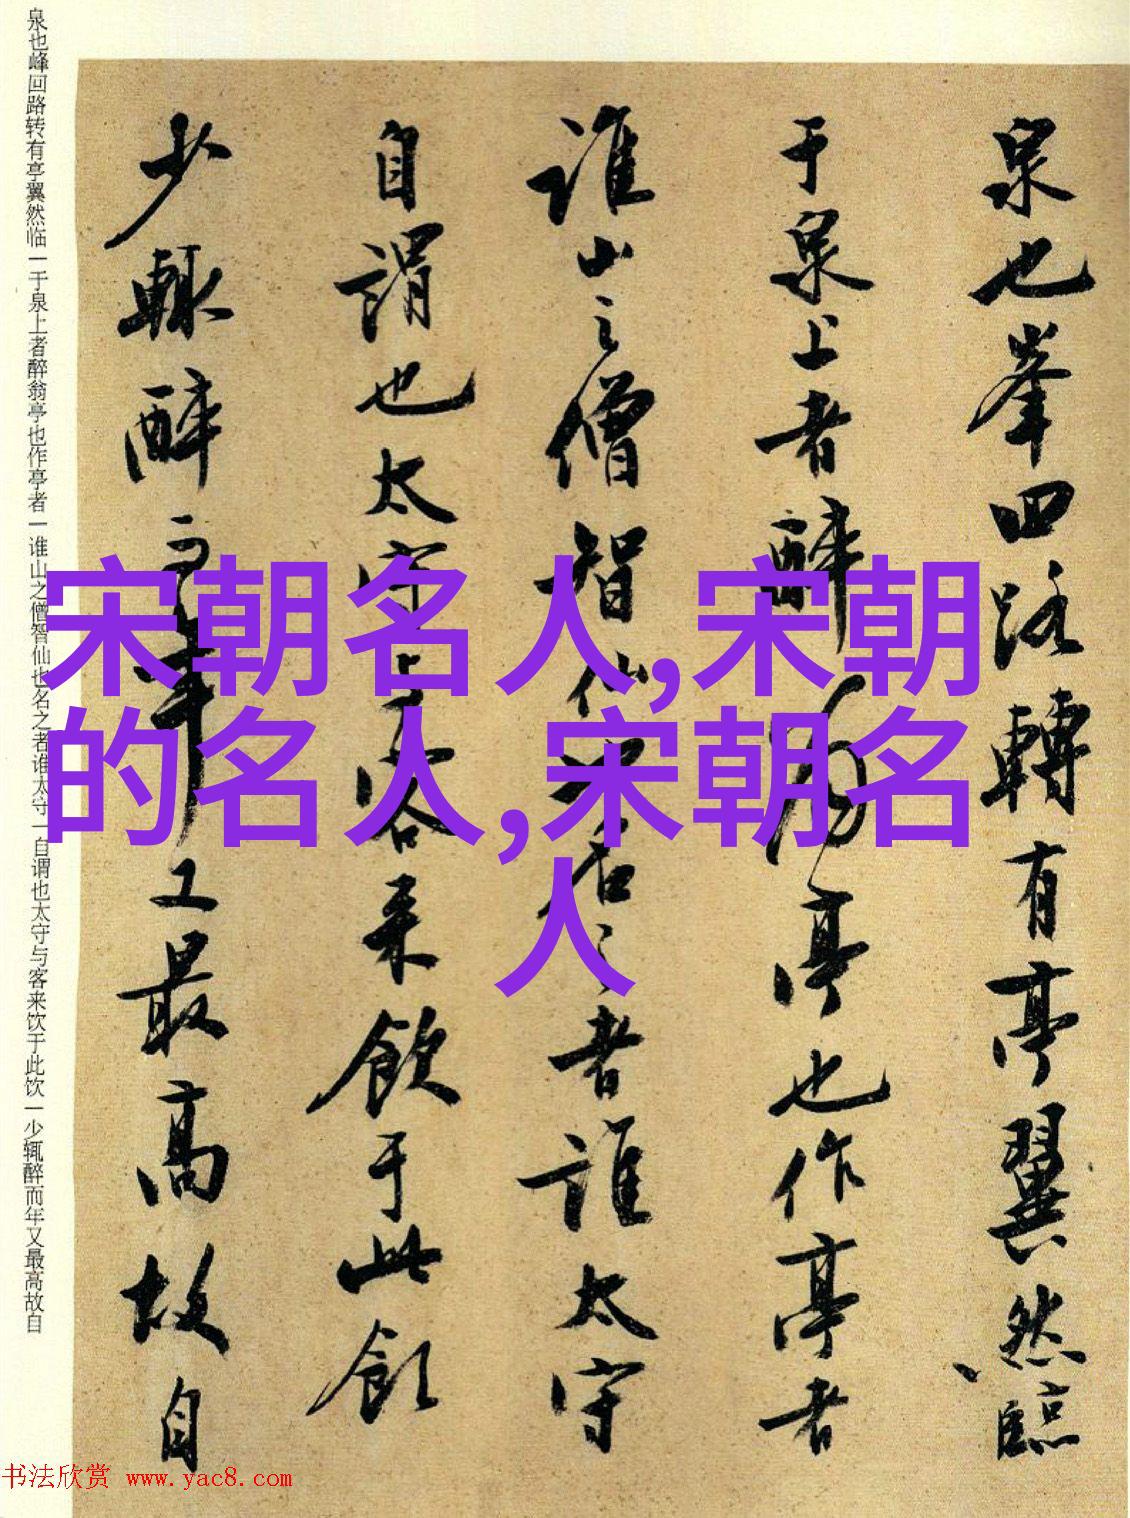 泉也峰回路转有亭翼然临一于泉上者醉翁亭也作亭者一谁山之僧智仙也名之者谁太守一自谓也太守与客来饮于此饮一少辄醉而年又最高故自
泉也峯回路轉有亭翼然臨
于泉上者醉翁亭也作亭者
誰山之僧智仙也名之者誰太守
自謂也太守与客来飲于此飲
少輒醉而年又最高故自
宋朝名人,宋朝
的名人,宋朝名
人
书法欣赏 www.yac8.com